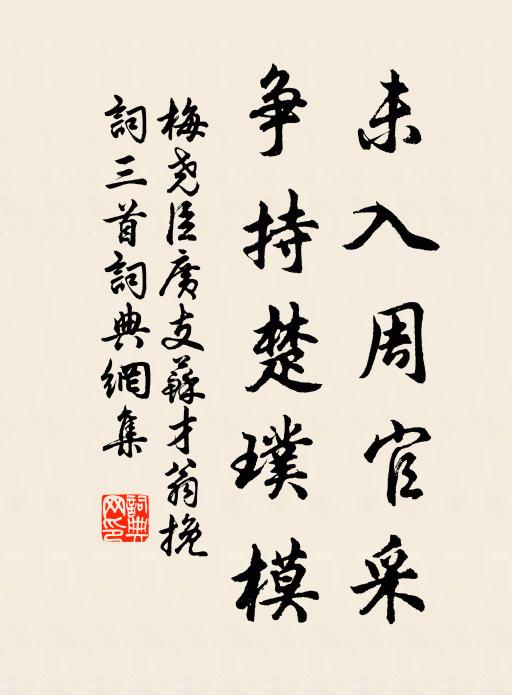 未入周官采
争持楚璞模
梅尧臣廣支蘇才翁挽
詞三首詞典網集
詞典網印